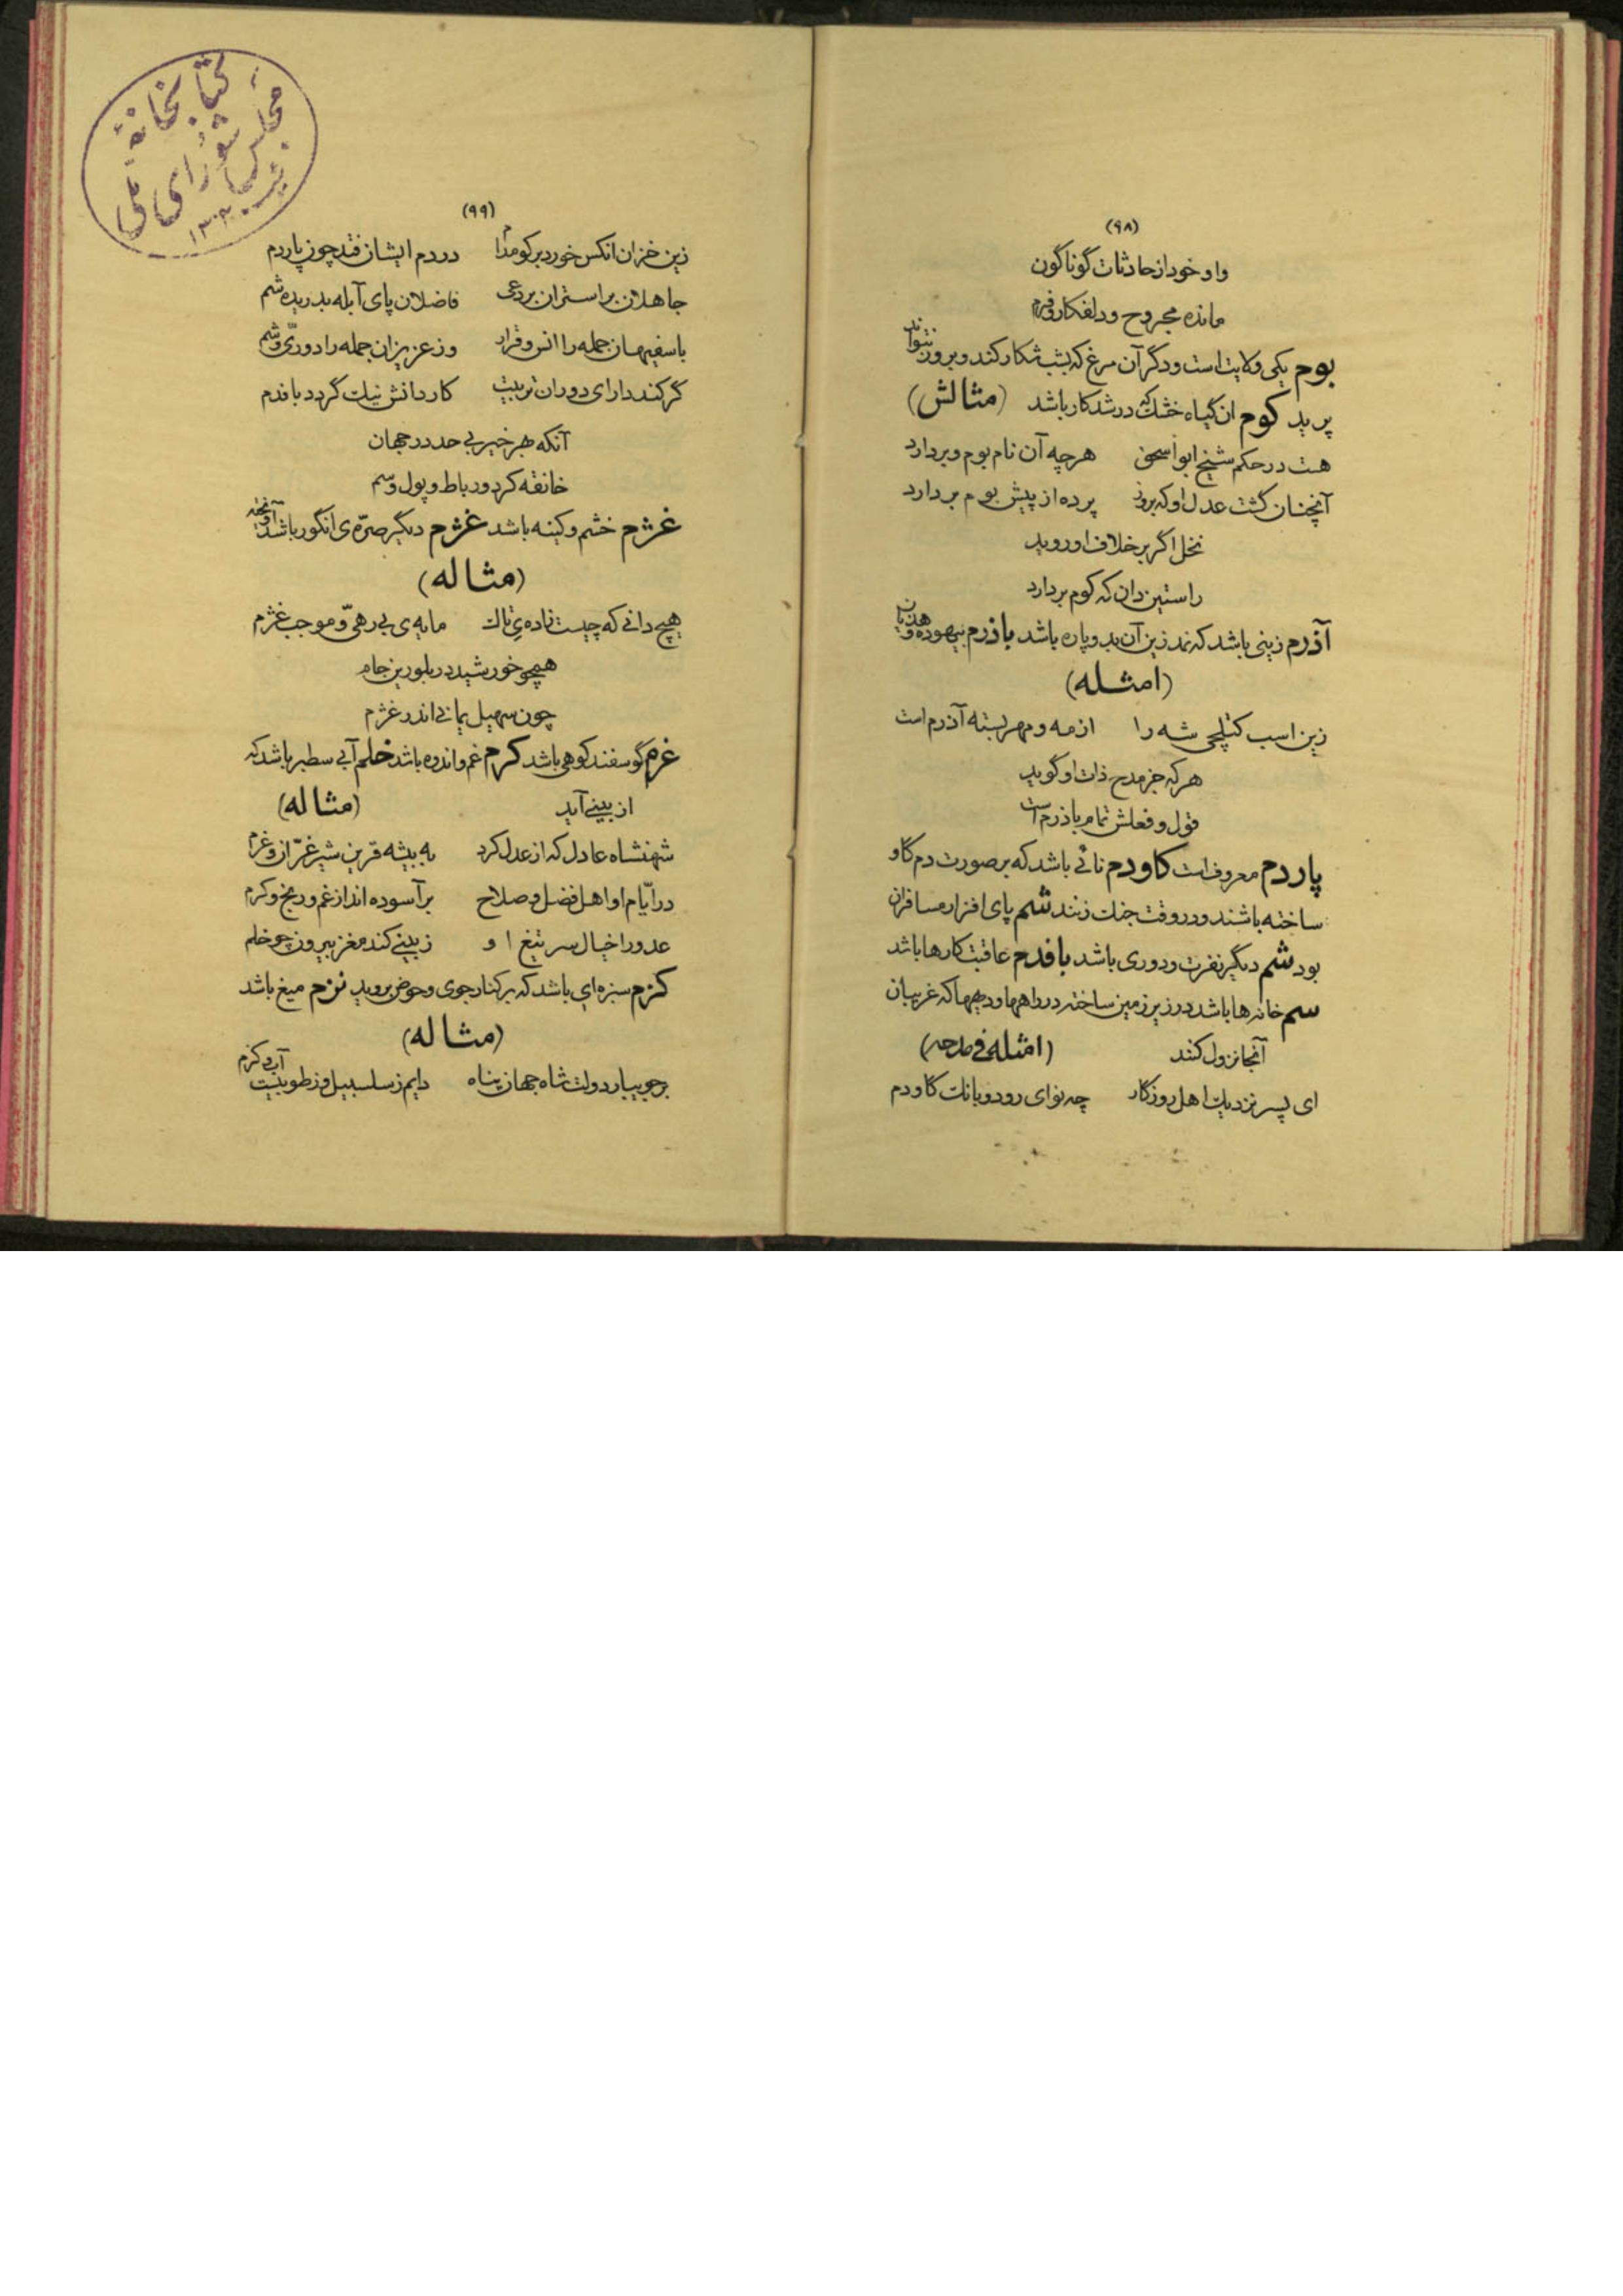 (۹۸)
واو خود از حادثات گوناگون
مانده مجروح و دلفکار و فرم
بوم یکی ولایت است و دگر آن مرغ که بشب شکار کند و بروز نتواند
پرید کوم ان گیاه خشک که در شد کار باشد (مثالش)
هست در حکم شیخ ابو اسحق هرچه آن نام بوم و بر دارد
آنچنان گشت عدل او که بروز پرده از پیش بوم بر دارد
نخل اگر بر خلاف او روید
راستین دان که کوم بر دارد
آذرم زینی باشد که نمد زین آن بدو پاره باشد باذرم بیهوده و هذیان
(امثله)
زین اسب کتلچی شه را از مه و مهر بسته آذرم است
هر که جز مدح ذات او گوید
قول و فعلش تمام باذرم است
پاردم معروف است کاودم نائی باشد که بر صورت دم گاو
ساخته باشند و در وقت جنك زنند شم پای افزار مسافران
بود شم دیگر نفرت و دوری باشد بافدم عاقبت کارها باشد
سم خانه ها باشد در زیر زمین ساخته در راهها و دیهها که غریبان
آنجا نزول کنند (امثله فی مدحه)
ای پسر نزدیك اهل روزگار چه نوای رود و بانك گاودم
(۹۹)
زین خران انکس خورد بر کو مدا م در دم ایشان فتد چون پاردم
جاهلان بر استران بردعی فاضلان پای آبله بدریده شم
با سفیهان جمله را انس و قرار وز عزیزان جمله را دوری و شم
گر کند دارای دوران تربیت کار دانش نیك گردد بافدم
آنکه بهر خیر بی حد در جهان
خانقه کرد و رباط و پول و سم
غژم خشم و کینه باشد غژم دیگر صرّه ی انگور باشد آونخته
(مثاله)
هیچ دانی که چیست زاده ی تاك مایه ی بی رهی و موجب غژم
همچو خورشید در بلورین جام
چون سهیل یمانی اندر غژم
غرم گوسفند کوهی باشد کرم غم و اندوه باشد خلم آبی سطبر باشد که
از بینی آید (مثاله)
شهنشاه عادل که از عدل کرد به بیشه قرین شیر غرّان و غرم
در ایّام او اهل فضل و صلاح بر آسوده اند از غم و رنج و کرم
عدو را خیال سر تیغ او ز بینی کند مغز بیرون چو خلم
کزم سبزه ای باشد که بر کنار جوی و حوض بروید نزم میغ باشد
(مثاله)
بر جویبار دولت شاه جهان پناه دایم ز سلسبیل و ز طوبیست آب و کزم
کتابخانۀ
مجلس شورای ملی